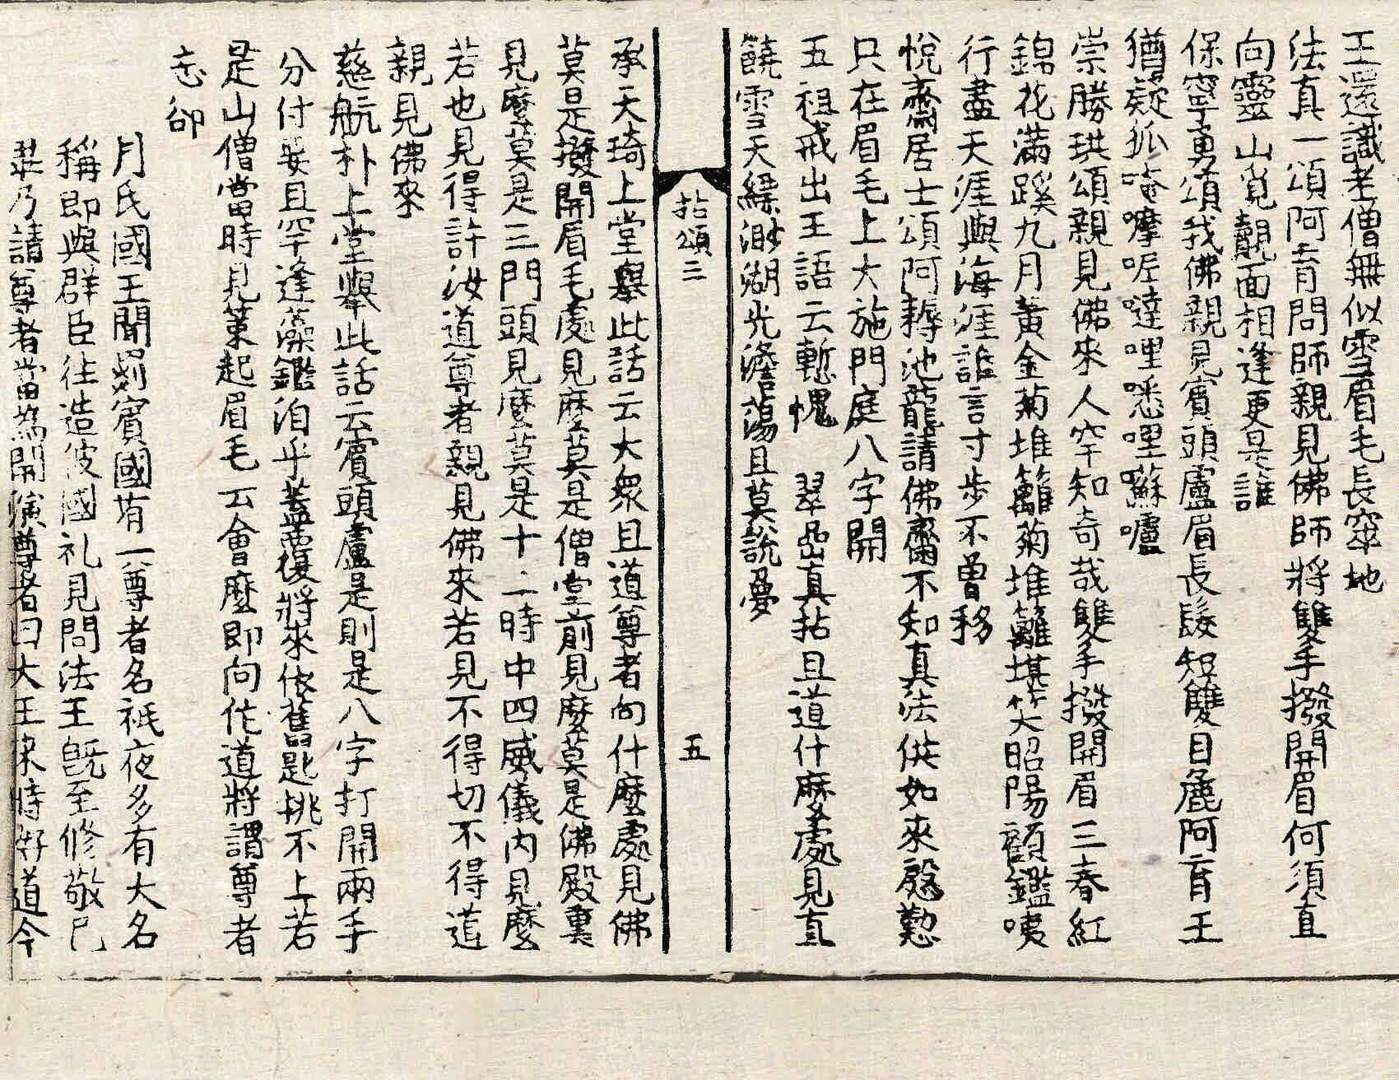 王還識老僧無似雪眉毛長窣地
法真一頌阿育問師親見佛師將雙手撥開眉何須直
向靈山覓覿面相逢更是誰
保寧勇頌我佛親見賓頭盧眉長髮短雙目麁阿育王
猶疑狐唵嚤呢噠哩悉哩蘇嚧
崇勝珙頌親見佛來人罕知奇哉雙手撥開眉三春紅
錦花滿蹊九月黃金菊堆籬菊堆籬堪笑昭陽顧鑑咦
行盡天涯與海涯誰言寸步不曾移
悅齋居士頌阿耨池龍請佛齋不知真法供如來慇懃
只在眉毛上大施門庭八字開
五祖戒出王語云慙愧 翠嵓真拈且道什麼處見直
饒雪天縹渺湖光澹蕩且莫說夢
拈頌三 五
承天琦上堂舉此話云大衆且道尊者向什麼處見佛
莫是撥開眉毛處見麼莫是僧堂前見麼莫是佛殿裏
見麼莫是三門頭見麼莫是十二時中四威儀內見麼
若也見得許汝道尊者親見佛來若見不得切不得道
親見佛來
慈航朴上堂舉此話云賓頭盧是則是八字打開兩手
分付要且罕逢藻鑑洎乎蓋覆將來依舊匙挑不上若
是山僧當時見策起眉毛云會麼即向他道將謂尊者
忘卻
月氏國王聞罽賓國有一尊者名祇夜多有大名
稱即與群臣往造彼國礼見問法王旣至修敬已
畢乃請尊者當爲開演尊者曰大王來時好道今